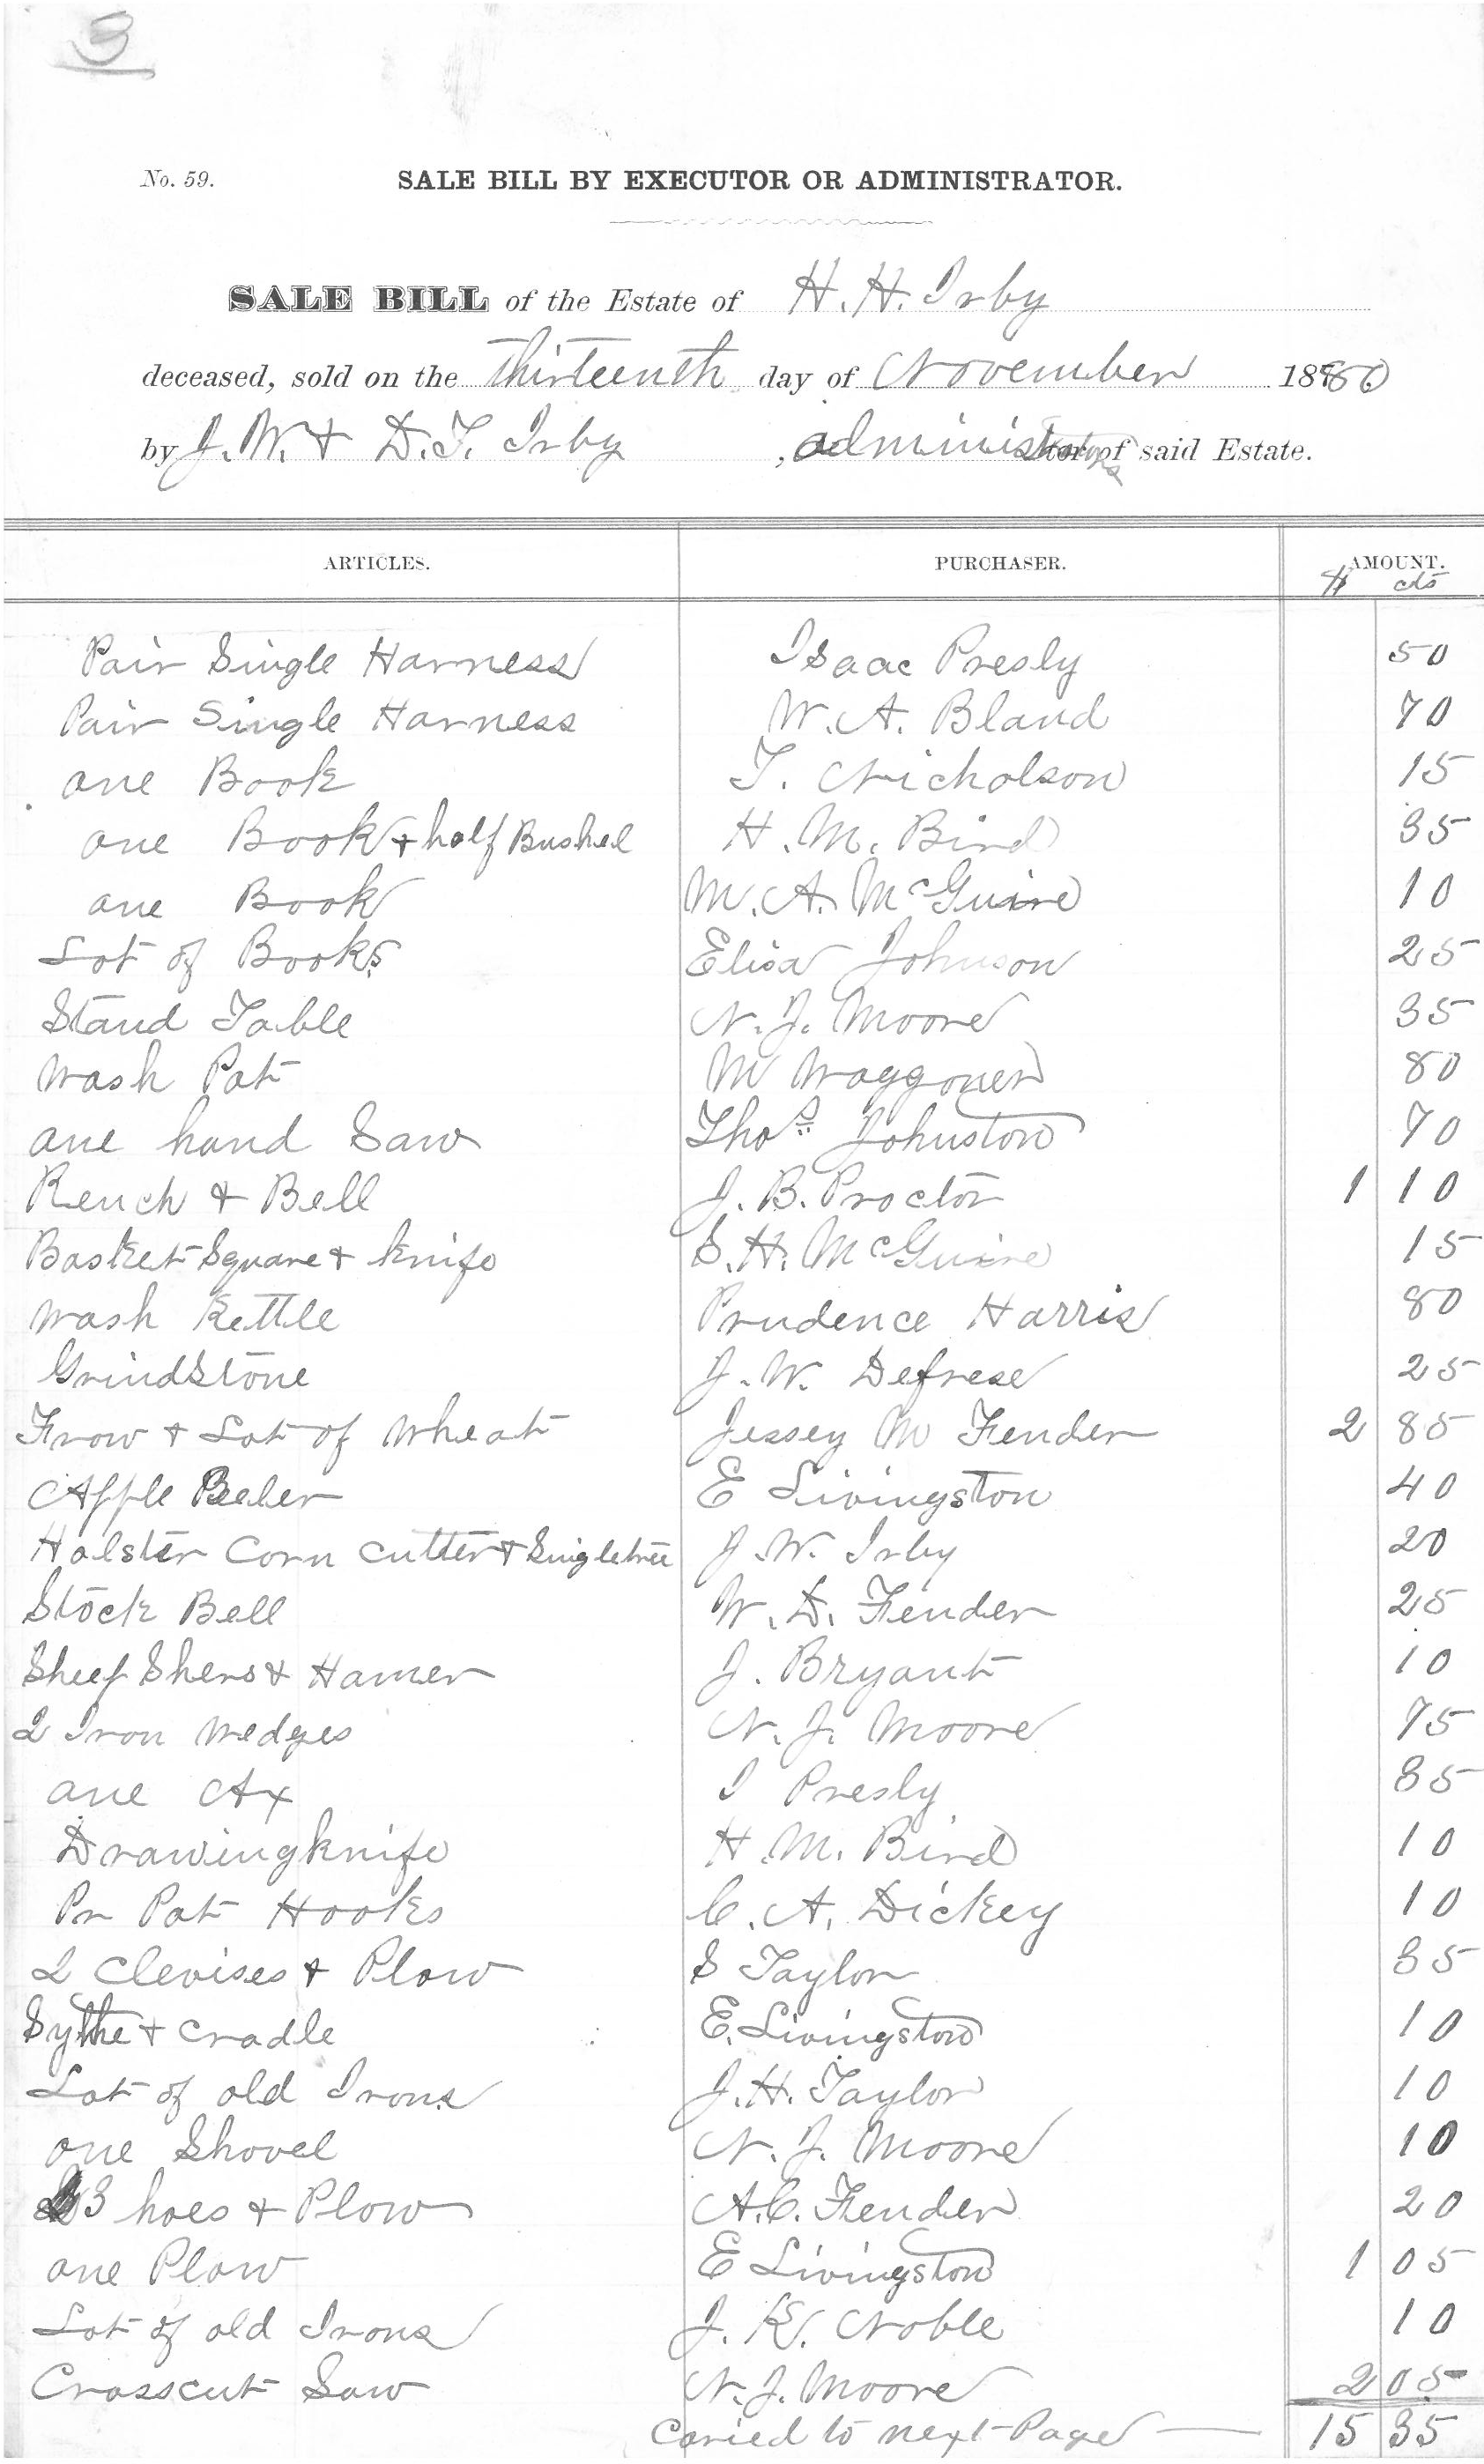 3
No. 59.
SALE BILL BY EXECUTOR OR ADMINISTRATOR.
SALE BILL of the Estate of H. H. Irby
deceased, sold on the thirteenth day of November 1880
by J. W. & D. T. Irby, administrators of said Estate.
ARTICLES. PURCHASER. AMOUNT.
$ cts
Pair Single Harness Isaac Presly 50
Pair Single Harness W. A. Bland 70
one Book T. Nicholson 15
one Book & half Bushel H. M. Bird 35
one Book M. A. McGuire 10
Lot of Books Elisa Johnson 25
Stand Table N. J. Moore 35
Wash Pot M Waggoner 80
one hand Saw Thos Johnston 70
Rench & Bell J. B. Proctor 1 10
Basket Square & knife S. H. McGuire 15
Wash Kettle Prudence Harris 80
GrindStone J. W. Defrese 25
Frow & Lot of Wheat Jessey M Fender 2 85
Apple Peeler E Livingston 40
Halster Corn Cutter & Singletree J. W. Irby 20
Stock Bell W. D. Fender 25
Sheep Shers & Hamer J. Bryant 10
2 Iron Wedges N. J. Moore 75
one Ax I Presly 35
Drawingknife H. M. Bird 10
Pr Pot Hooks C. A. Dickey 10
2 Clevises & Plow S Taylor 35
Sythe & Cradle E. Livingston 10
Lot of old Irons J. H. Taylor 10
one Shovel N. J. Moore 10
3 hoes & Plow A. C. Fender 20
one Plow E Livingston 1 05
Lot of old Irons J. K. Noble 10
Crosscut Saw N. J. Moore 2 05
Caried to next Page 15 35